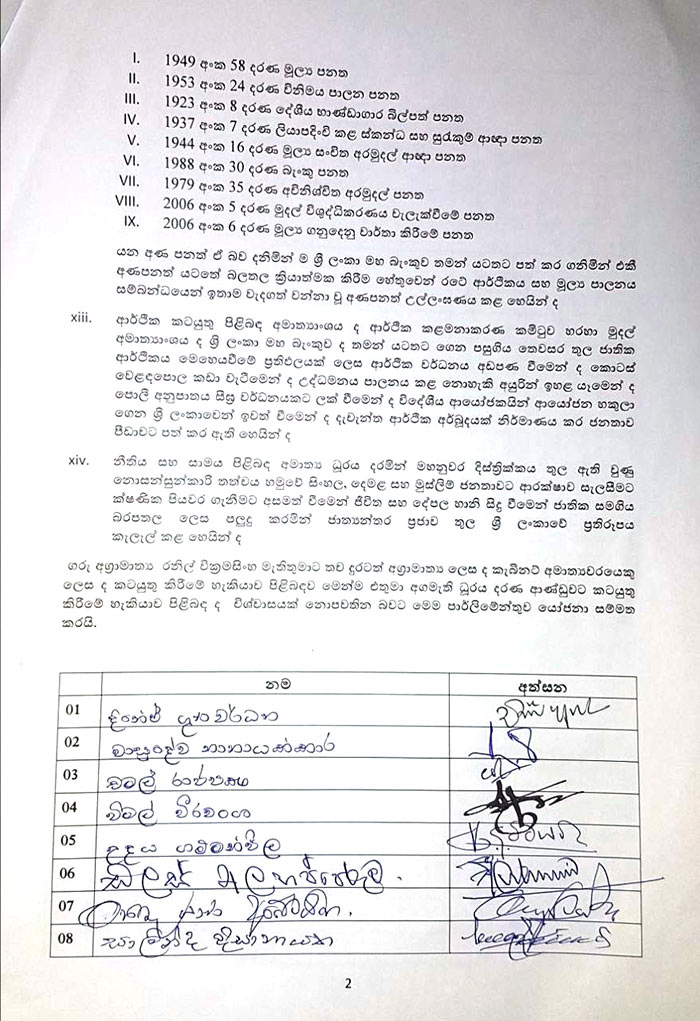 I. 1949 අංක 58 දරණ මූල්‍ය පනත
II. 1953 අංක 24 දරණ විනිමය පාලන පනත
III. 1923 අංක 8 දරණ දේශීය භාණ්ඩාගාර බිල්පත් පනත
IV. 1937 අංක 7 දරණ ලියාපදිංචි කළ ස්කන්ධ සහ සුරැකුම් ආඥා පනත
V. 1944 අංක 16 දරණ මූල්‍ය සංචිත අරමුදල් ආඥා පනත
VI. 1988 අංක 30 දරණ බැංකු පනත
VII. 1979 අංක 35 දරණ අවිනිශ්චිත අරමුදල් පනත
VIII. 2006 අංක 5 දරණ මුදල් විශුද්ධිකරණය වැලැක්වීමේ පනත
IX. 2006 අංක 6 දරණ මූල්‍ය ගනුදෙනු වාර්තා කිරීමේ පනත
යන අණ පනත් ඒ බව දනිමින් ම ශ්‍රී ලංකා මහ බැංකුව තමන් යටතට පත් කර ගනිමින් එකී
අණපනත් යටතේ බලතල ක්‍රියාත්මක කිරීම හේතුවෙන් රටේ ආර්ථිකය සහ මූල්‍ය පාලනය
සම්බන්ධයෙන් ඉතාම වැදගත් වන්නා වූ අණපනත් උල්ලංඝණය කළ හෙයින් ද
xiii. ආර්ථික කටයුතු පිළිබඳ අමාත්‍යාංශය ද ආර්ථික කළමනාකරණ කමිටුව හරහා මුදල්
අමාත්‍යාංශය ද ශ්‍රී ලංකා මහ බැංකුව ද තමන් යටතට ගෙන පසුගිය තෙවසර තුල ජාතික
ආර්ථිකය මෙහෙයවීමේ ප්‍රතිඵලයක් ලෙස ආර්ථික වර්ධනය අඩපණ වීමෙන් ද කොටස්
වෙළඳපොල කඩා වැටීමෙන් ද උද්ධමනය පාලනය කළ නොහැකි අයුරින් ඉහළ යෑමෙන් ද
පොලී අනුපාතය සීඝ්‍ර වර්ධනයකට ලක් වීමෙන් ද විදේශීය ආයෝජකයින් ආයෝජන හකුලා
ගෙන ශ්‍රී ලංකාවෙන් ඉවත් වීමෙන් ද දැවැන්ත ආර්ථික අර්බුදයක් නිර්මාණය කර ජනතාව
පීඩාවට පත් කර ඇති හෙයින් ද
xiv. නීතිය සහ සාමය පිළිබඳ අමාත්‍ය ධූරය දරමින් මහනුවර දිස්ත්‍රික්කය තුල ඇති වුණු
නොසන්සුන්කාරී තත්වය හමුවේ සිංහල, දෙමළ සහ මුස්ලිම් ජනතාවට ආරක්ෂාව සැලසීමට
ක්ෂණික පියවර ගැනීමට අසමත් වීමෙන් ජීවිත සහ දේපල හානි සිදු වීමෙන් ජාතික සමගිය
බරපතල ලෙස පලුදු කරමින් ජාත්‍යන්තර ප්‍රජාව තුල ශ්‍රී ලංකාවේ ප්‍රතිරූපය
කැලැල් කළ හෙයින් ද
ගරු අග්‍රාමාත්‍ය රනිල් වික්‍රමසිංහ මැතිතුමාට තව දුරටත් අග්‍රාමාත්‍ය ලෙස ද කැබිනට් අමාත්‍යවරයෙකු
ලෙස ද කටයුතු කිරීමේ හැකියාව පිළිබඳව මෙන්ම එතුමා අගමැති ධූරය දරණ ආණ්ඩුවට කටයුතු
කිරීමේ හැකියාව පිළිබඳ ද විශ්වාසයක් නොපවතින බවට මෙම පාර්ලිමේන්තුව යෝජනා සම්මත
කරයි.
නම අත්සන
01 දිනේෂ් ගුණවර්ධන
02 වාසුදේව නානායක්කාර
03 චමල් රාජපක්ෂ
04 විමල් වීරවංශ
05 උදය ගම්මන්පිල
06 ඩලස් අලහප්පෙරුම.
07
08 සාලින්ද දිසානායක
2